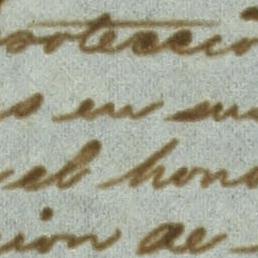 protecció
s en su
el hono
cion de